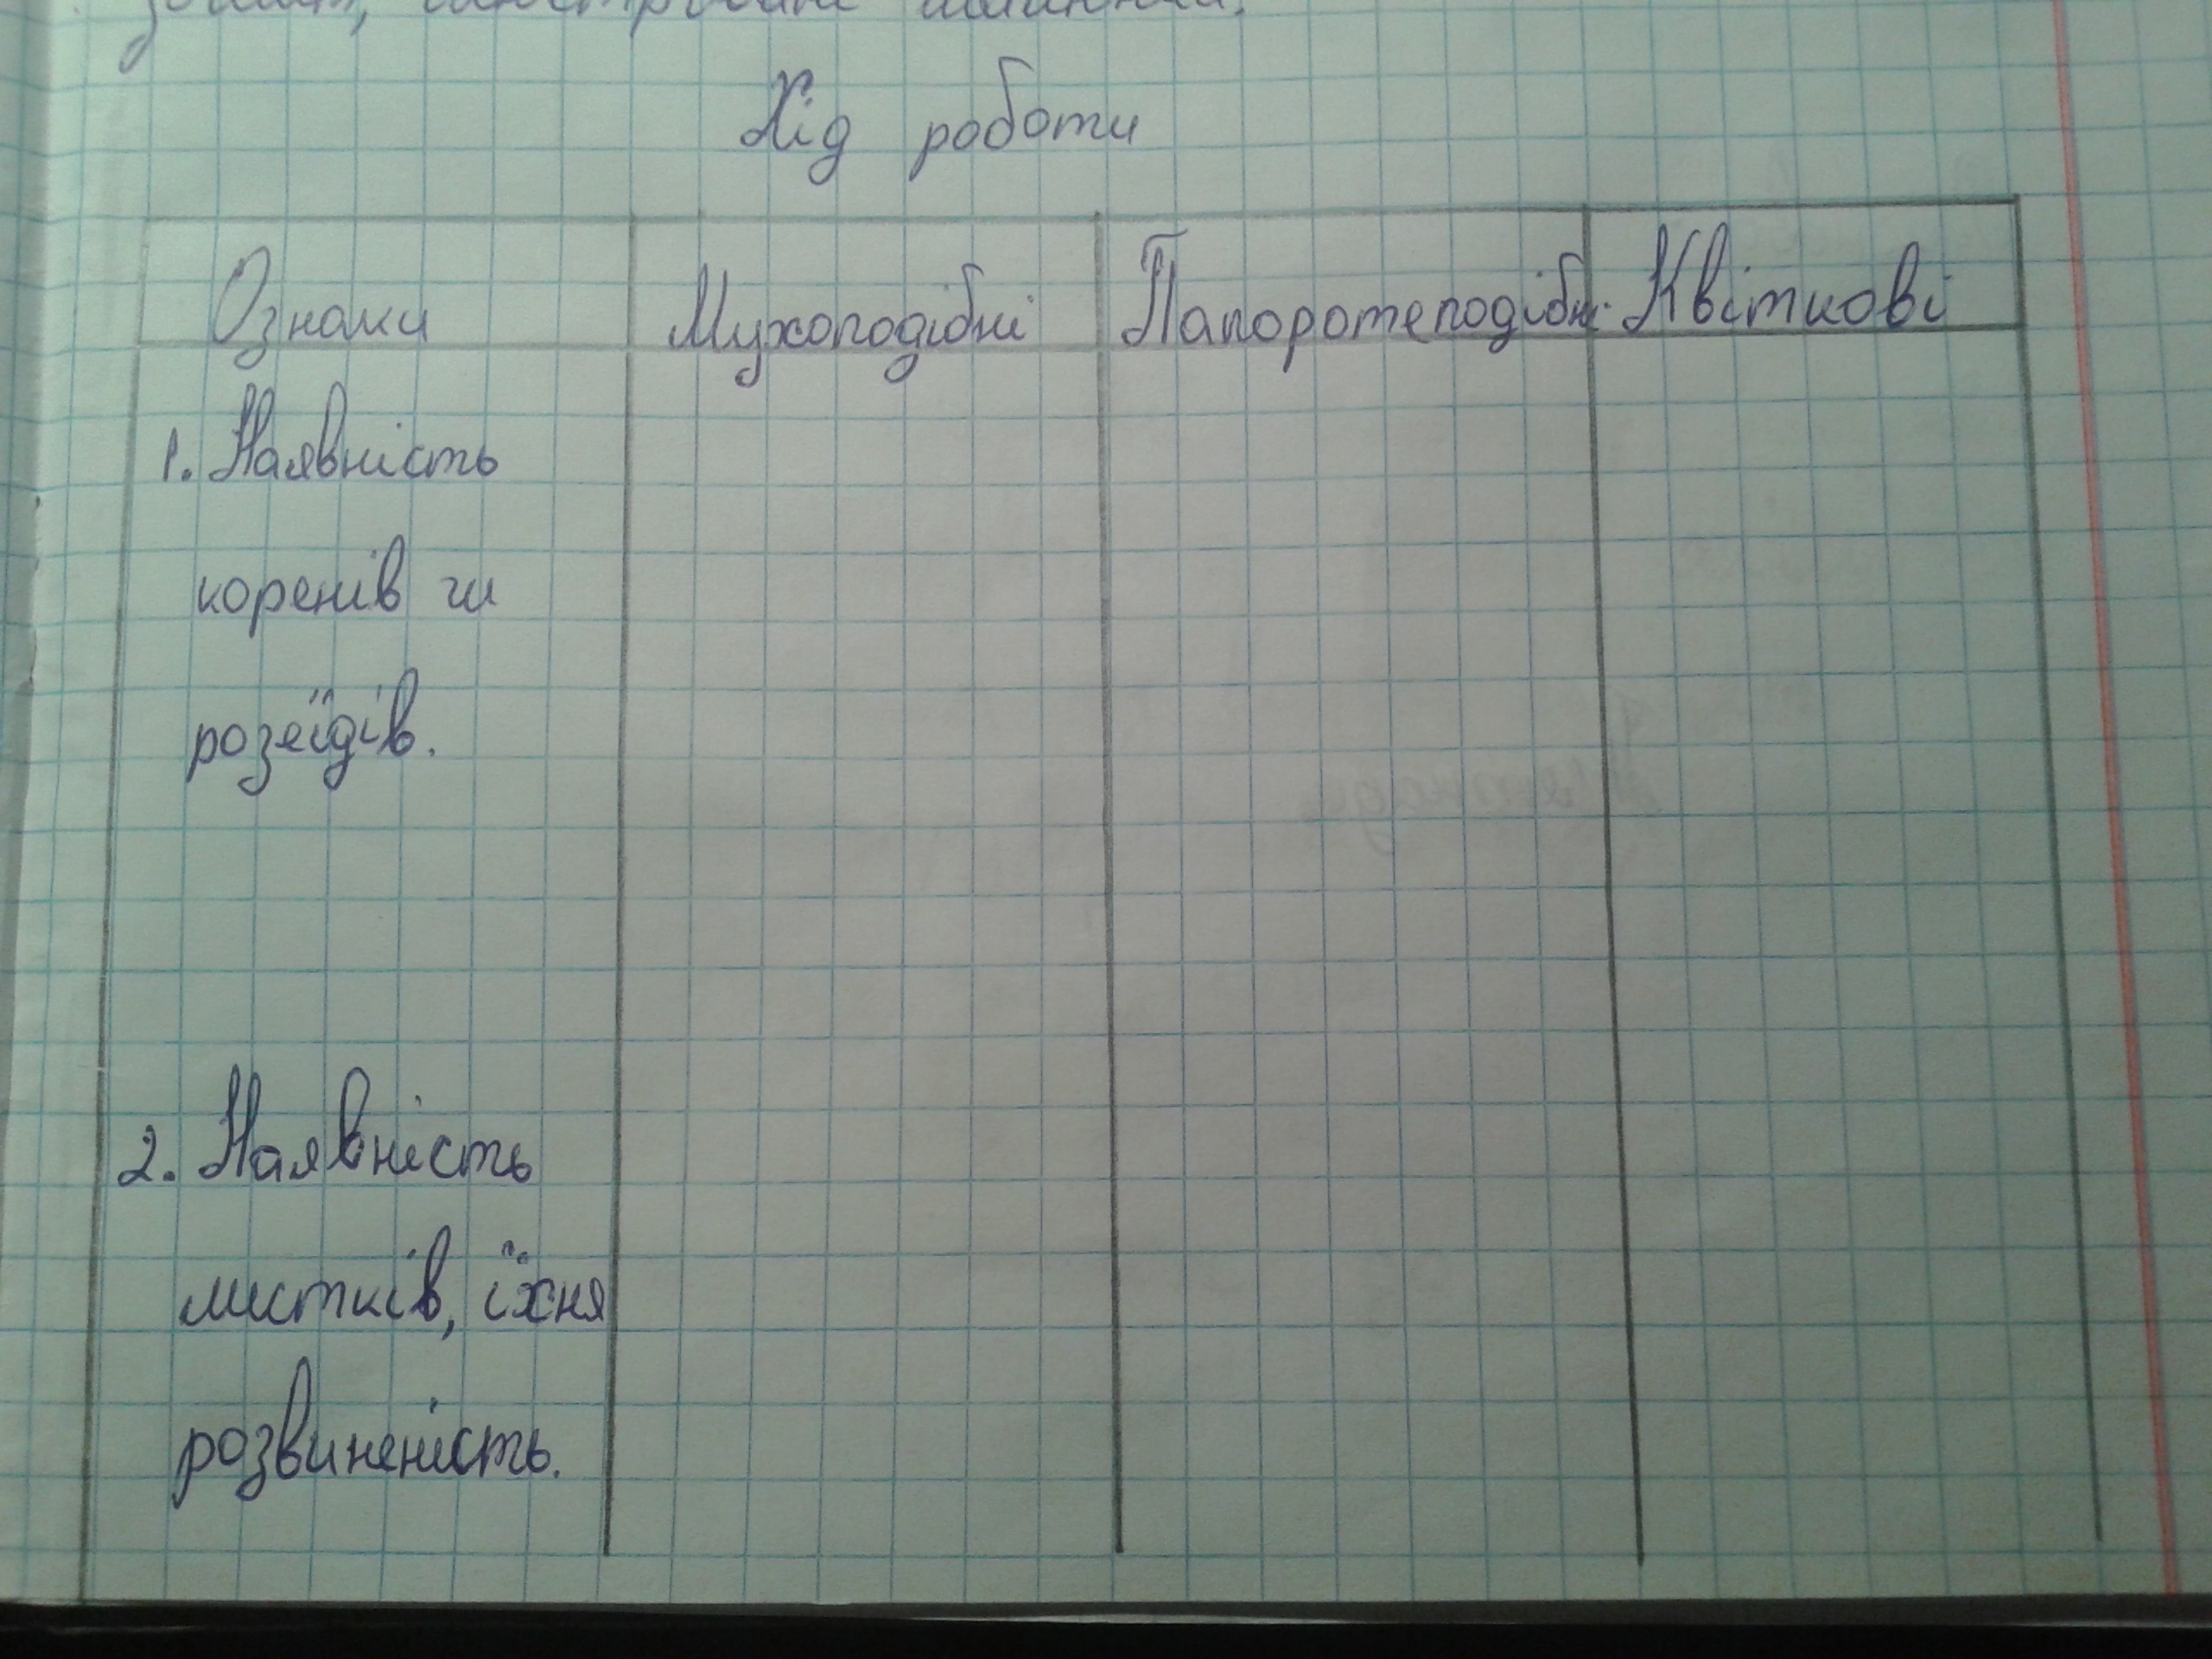 Хід роботи
Ознаки Мухоподібні Папоротеподібні Квіткові
1. Наявність
коренів чи
розеїдів.
2. Наявність
листків, їхня
розвиненість.